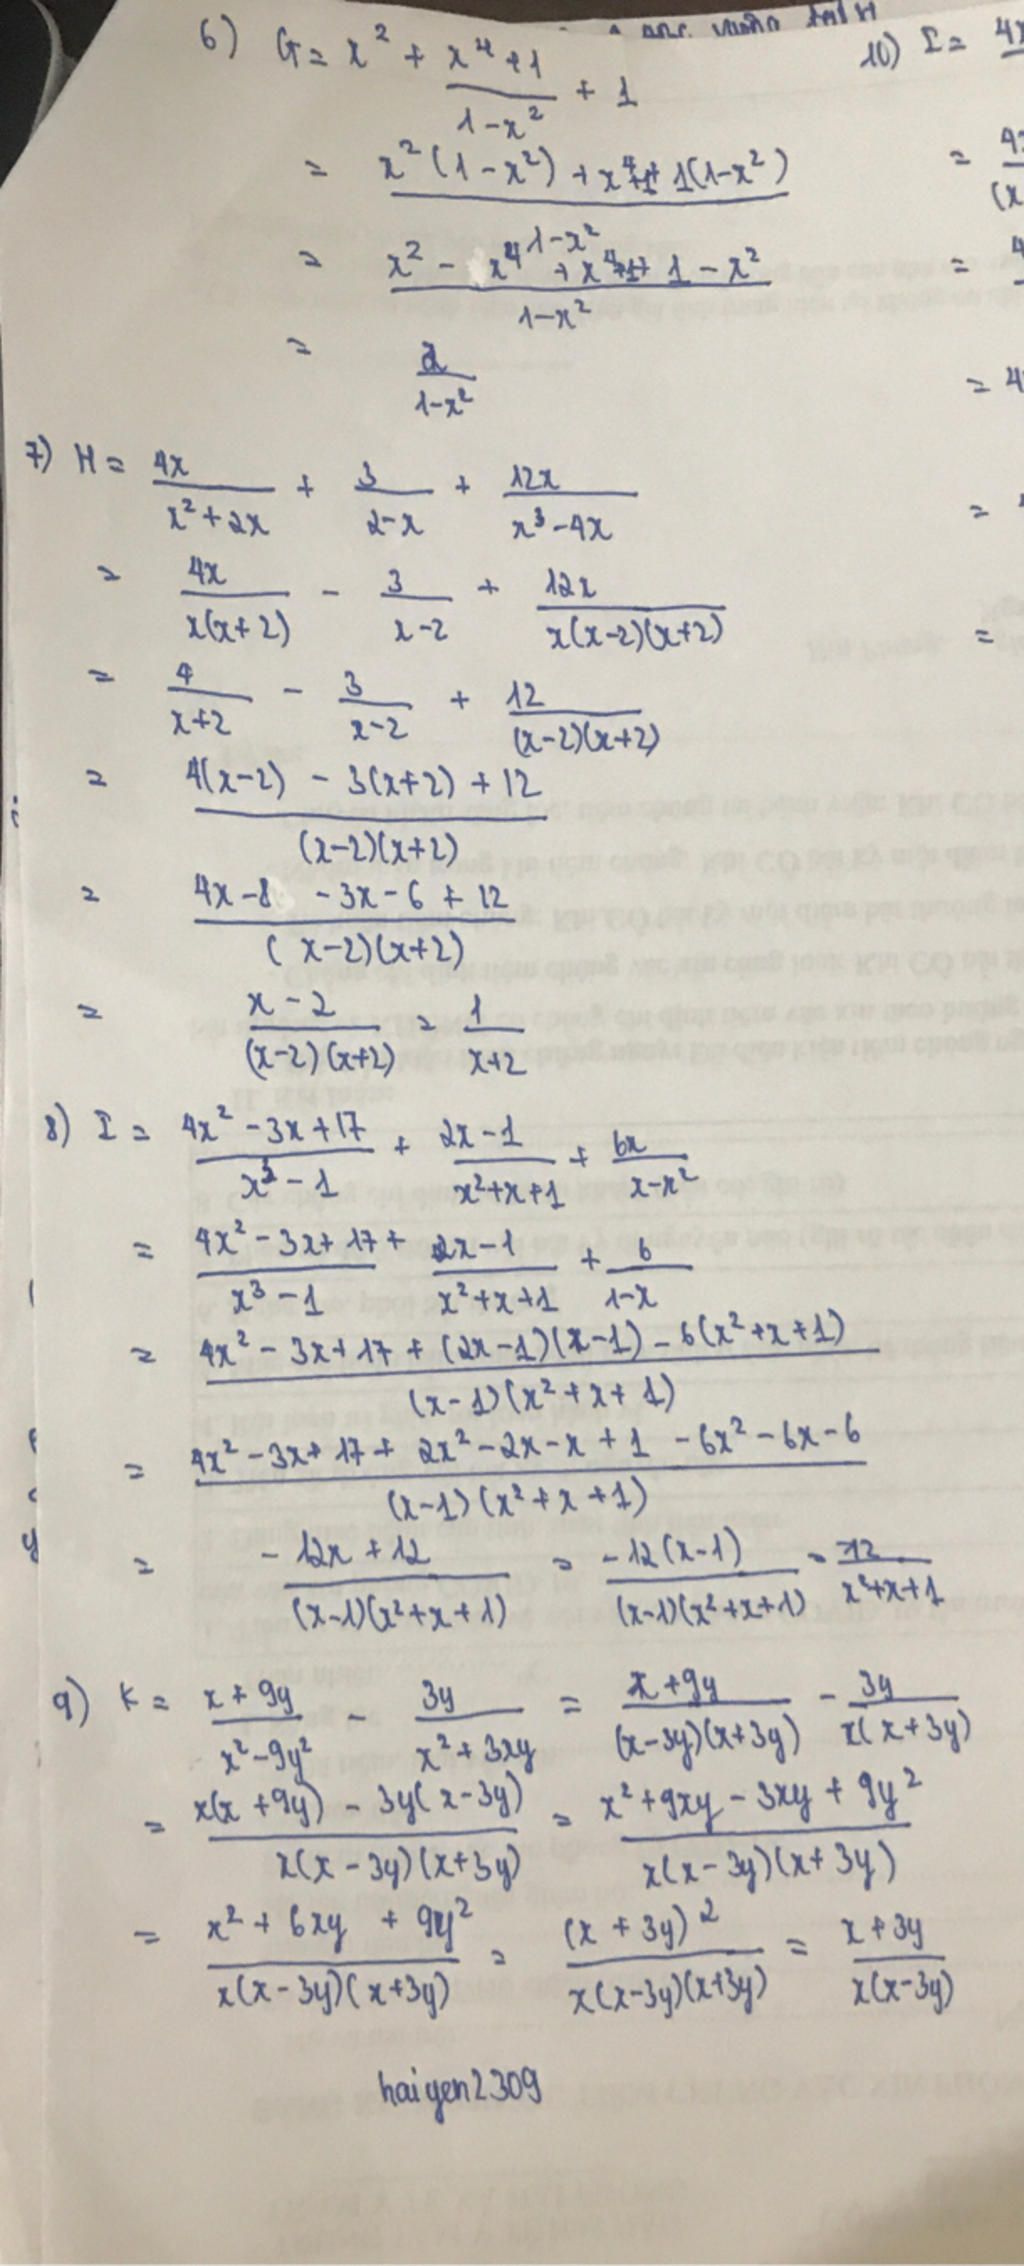 6) G = x² + \frac{x⁴+1}{1-x²} + 1
= \frac{x²(1-x²) + x⁴+1+1(1-x²)}{1-x²}
= \frac{x² - x⁴ + x⁴+1+1-x²}{1-x²}
= \frac{2}{1-x²}
7) H = \frac{4x}{x²+2x} + \frac{3}{2-x} + \frac{12x}{x³-4x}
= \frac{4x}{x(x+2)} - \frac{3}{x-2} + \frac{12x}{x(x-2)(x+2)}
= \frac{4}{x+2} - \frac{3}{x-2} + \frac{12}{(x-2)(x+2)}
= \frac{4(x-2) - 3(x+2) + 12}{(x-2)(x+2)}
= \frac{4x-8 - 3x-6+12}{(x-2)(x+2)}
= \frac{x-2}{(x-2)(x+2)} = \frac{1}{x+2}
8) I = \frac{4x²-3x+17}{x³-1} + \frac{2x-1}{x²+x+1} + \frac{6x}{x-x²}
= \frac{4x²-3x+17}{x³-1} + \frac{2x-1}{x²+x+1} + \frac{6}{1-x}
= \frac{4x²-3x+17+(2x-1)(x-1)-6(x²+x+1)}{(x-1)(x²+x+1)}
= \frac{4x²-3x+17+2x²-2x-x+1-6x²-6x-6}{(x-1)(x²+x+1)}
= \frac{-12x+12}{(x-1)(x²+x+1)} = \frac{-12(x-1)}{(x-1)(x²+x+1)} = \frac{-12}{x²+x+1}
9) K = \frac{x+9y}{x²-9y²} - \frac{3y}{x²+3xy} = \frac{x+9y}{(x-3y)(x+3y)} - \frac{3y}{x(x+3y)}
= \frac{x(x+9y) - 3y(x-3y)}{x(x-3y)(x+3y)} = \frac{x²+9xy-3xy+9y²}{x(x-3y)(x+3y)}
= \frac{x²+6xy+9y²}{x(x-3y)(x+3y)} = \frac{(x+3y)²}{x(x-3y)(x+3y)} = \frac{x+3y}{x(x-3y)}
haiyen2309
10) I =